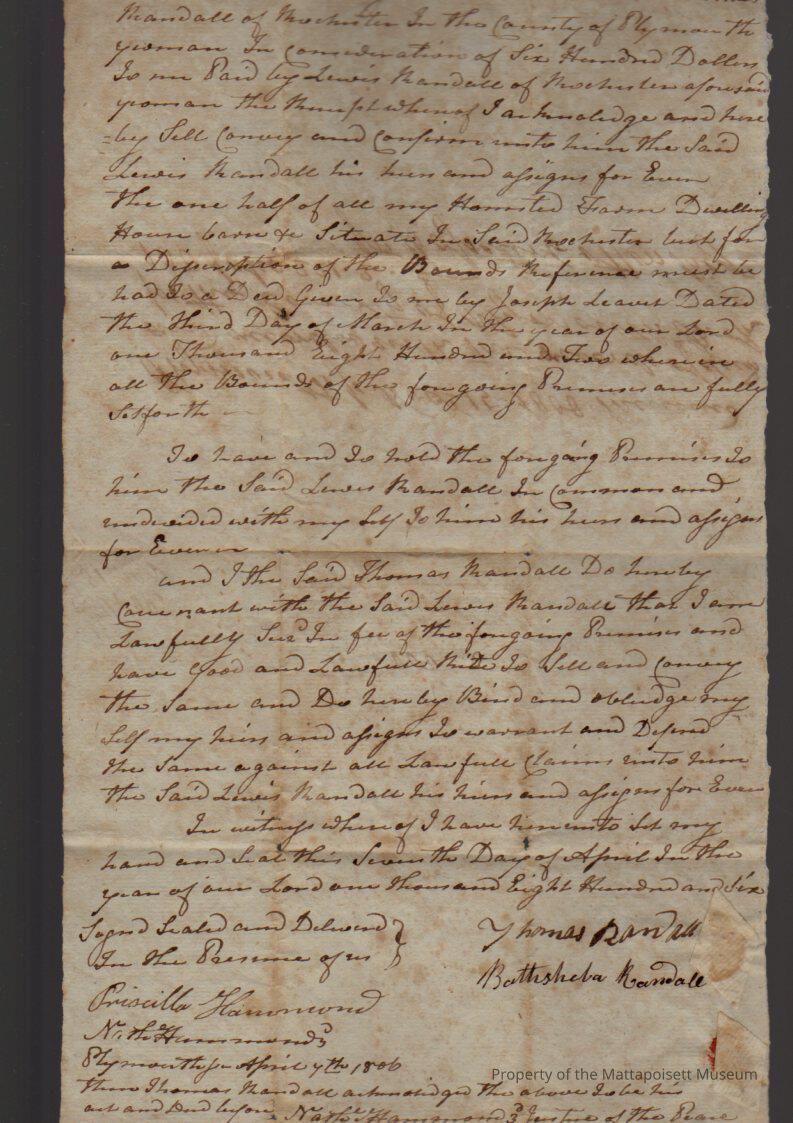 Randall of Rochester In the County of Plymouth
yeoman In consideration of Six Hundred Dollers
To me Paid by Lewis Randall of Rochester aforesaid
yeoman the Receipt whereof I acknoledge and here
=by Sell Convey and Confirm unto him the Said
Lewis Randall his heirs and assigns for Ever
the one half of all my Homsted Farm Dwelling
House barn &c Situate In Said Rochester but for
a Discription of the Bounds Referance must be
had To a Deed Given To me by Joseph Leavet Dated
the third Day of March In the year of our Lord
one Thousand Eight Hundred and Two wherein
all the Bounds of the forgoing Premises are fully
Setforth
To have and To hold the forgoing Premises To
him the Said Lewis Randall In Common and
undevided with my Self To him his heirs and assigns
for Ever
and I the Said Thomas Randall Do hereby
Covenant with the Said Lewis Randall that I am
Lawfully Seizd In fee of the forgoing Premises and
have Good and Lawfull Rite To Sell and Convey
the Same and Do hereby Bind and obledge my
Self my heirs and assigns To warrant and Defend
the Same against all Lawfull Claims unto him
the Said Lewis Randall his heirs and assigns for Ever
In witness whereof I have hereunto Set my
hand and Seal this Seventh Day of April In the
year of our Lord one thousand Eight Hundred and Six
Signd Sealed and Deliverd
In the Presence of us
Thomas Randall
Bathsheba Randall
Priscilla Hammond
Nath Hammond 3d
Plymouth ss April 7th 1806
then Thomas Randall acknoledged the above To be his
act and Deed before Nathl Hammond 3d Justice of the Peace
Property of the Mattapoisett Museum